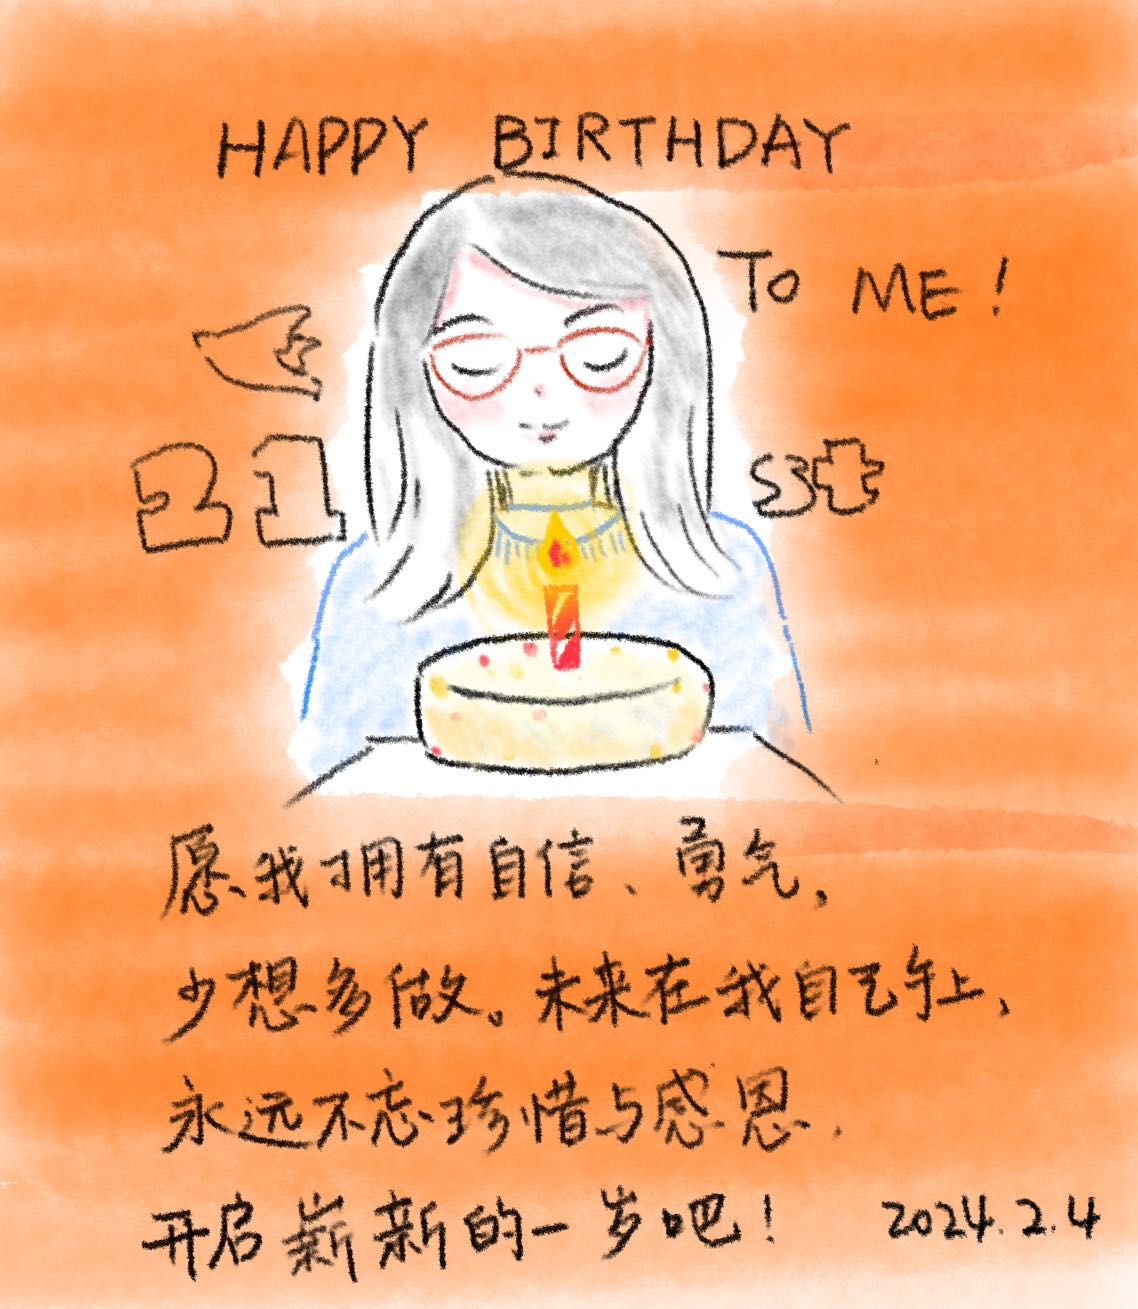 HAPPY BIRTHDAY
TO ME!
21 st
愿我拥有自信、勇气，
少想多做。未来在我自己手上，
永远不忘珍惜与感恩.
开启崭新的一岁吧！ 2024.2.4